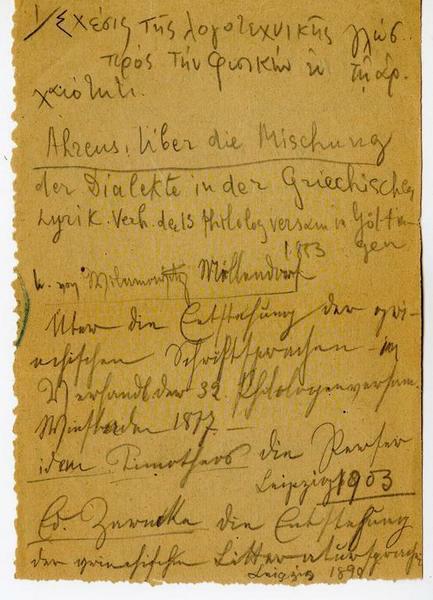 1/ Σχέσις τῆς λογοτεχνικῆς γλώσ
πρὸς τὴν φυσικὴν ἐν τῇ ἀρ.
χαιότητι.
Ahrens, Über die Mischung
der Dialekte in der Griechischen
Lyrik. Verh. der 13 Philolog versam in Göttin
gen
1853
U. von Wilamowitz Möllendorf
Über die Entstehung der gri-
echischen Schriftsprachen - in
Verhandl der 32. Philologenversam.
Wiesbaden 1877 -
idem Timotheos die Perser
Leipzig 1903
Ed. Zarncke die Entstehung
der griechischen Litteratursprachen
Leipzig 1890